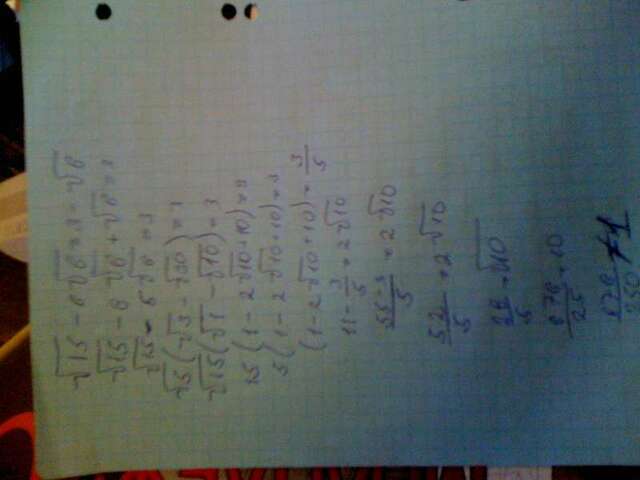 √15 - 6√6 = 3 - √6
√15 - 6√6 + √6 = 3
√15 - 5√6 = 3
√5(√3 - √30) = 3
√15(√1 - √10) = 3
15(1 - 2√10 + 10) = 9
5(1 - 2√10 + 10) = 3
(1 - 2√10 + 10) = 3/5
11 - 3/5 = 2√10
55-3/5 = 2√10
52/5 = 2√10
26/5 = √10
676/25 = 10
676/250 ≠ 1